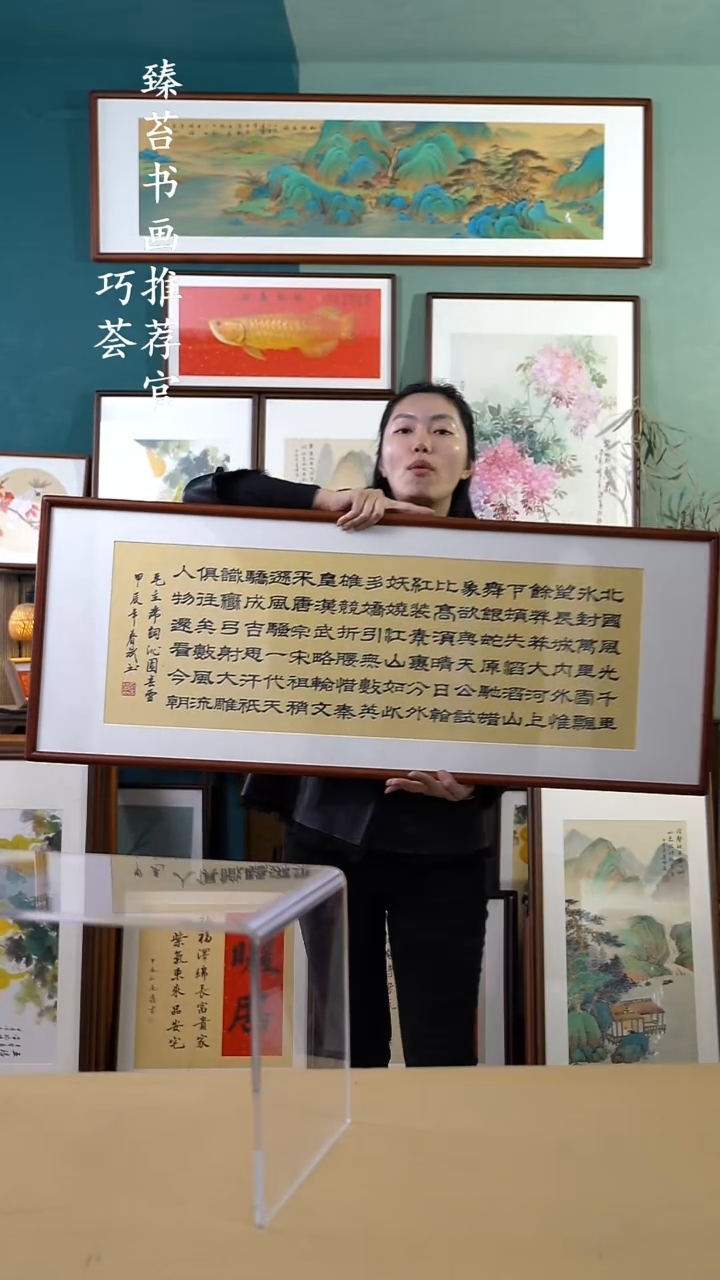 臻苔书画推荐官
巧荟
北國風光千里
冰封萬里雪飄
望長城內外惟
餘莽莽大河上
下頓失滔滔山
舞銀蛇原馳蠟
象欲與天公試
比高須晴日看
紅裝素裹分外
妖嬈江山如此
多嬌引無數英
雄競折腰惜秦
皇漢武略輸文
采唐宗宋祖稍
遜風騷一代天
驕成吉思汗祇
識彎弓射大雕
俱往矣數風流
人物還看今朝
毛主席詞沁園春雪
甲辰年春
暖居
福澤綿長富貴家
紫氣東來品安宅